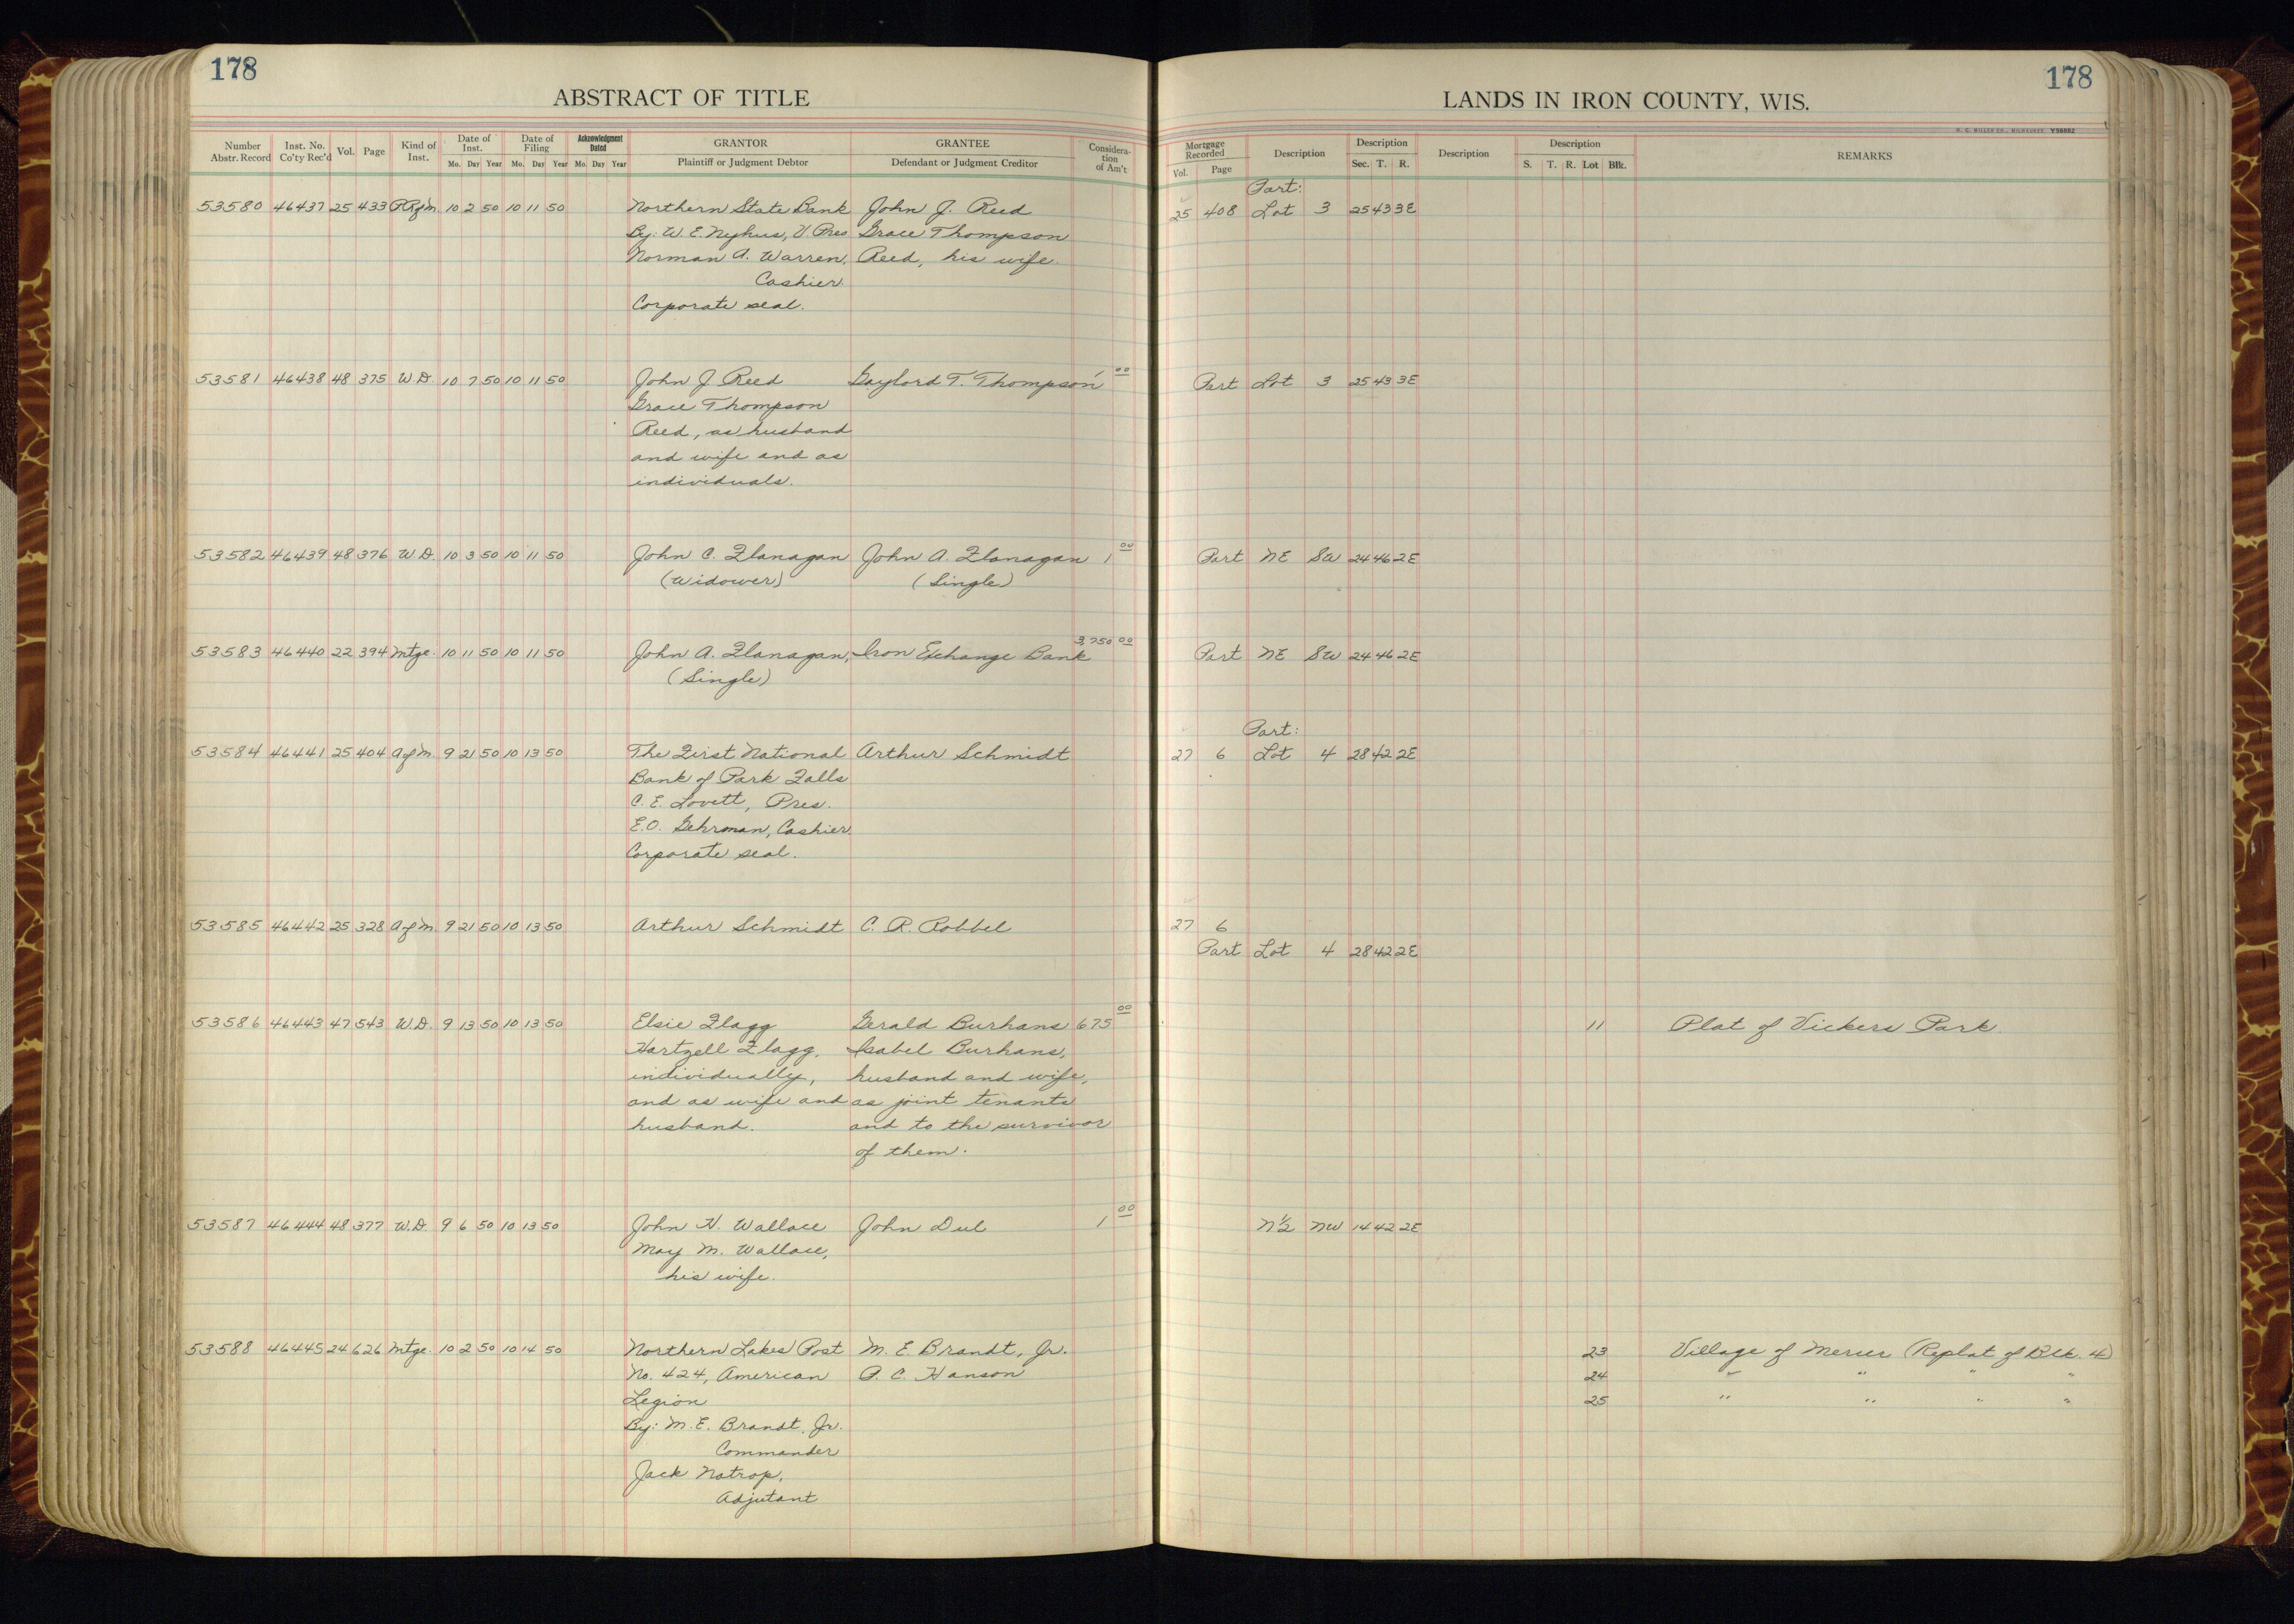 178
ABSTRACT OF TITLE
Number Abstr. Record Inst. No. Co'ty Rec'd Vol. Page Kind of Inst. Date of Inst. Mo. Day Year Date of Filing Mo. Day Year Acknowledgment Dated Mo. Day Year GRANTOR Plaintiff or Judgment Debtor GRANTEE Defendant or Judgment Creditor Consideration of Am't
178
LANDS IN IRON COUNTY, WIS.
H. C. MILLER CO., MILWAUKEE Y56882
Mortgage Recorded Vol. Page Description Description Sec. T. R. Description Description S. T. R. Lot Blk. REMARKS
Part:
53580 46437 25 433 10 2 50 10 11 50 Northern State Bank John J. Reed 25 408 Lot 3 25 43 3E
By: W. E. Nyhus, V. Pres Grace Thompson
Norman A. Warren, Reed, his wife.
Cashier.
Corporate seal.
53581 46438 48 375 W.D. 10 7 50 10 11 50 John J. Reed Gaylord T. Thompson 1 00 Part Lot 3 25 43 3E
Grace Thompson
Reed, as husband
and wife and as
individuals.
53582 46439 48 376 W.D. 10 3 50 10 11 50 John C. Flanagan John A. Flanagan 1 00 Part NE SW 24 46 2E
(Widower) (Single)
53583 46440 22 394 Mtge. 10 11 50 10 11 50 John A. Flanagan, Iron Exchange Bank 3,750 00 Part NE SW 24 46 2E
(Single)
Part:
53584 46441 25 404 A of M. 9 21 50 10 13 50 The First National Arthur Schmidt 27 6 Lot 4 28 42 2E
Bank of Park Falls
C. E. Lovett, Pres.
E. O. Gehrman, Cashier.
Corporate seal.
53585 46442 25 328 A of M. 9 21 50 10 13 50 Arthur Schmidt C. R. Robbel 27 6
Part Lot 4 28 42 2E
53586 46443 47 543 W.D. 9 13 50 10 13 50 Elsie Flagg Gerald Burhans 675 00 11 Plat of Vickers Park.
Hartzell Flagg, Isabel Burhans,
individually, husband and wife,
and as wife and as joint tenants
husband. and to the survivor
of them.
53587 46444 48 377 W.D. 9 6 50 10 13 50 John H. Wallace John Dul 1 00 N½ NW 14 42 2E
May M. Wallace,
his wife.
53588 46445 24 626 Mtge. 10 2 50 10 14 50 Northern Lakes Post M. E. Brandt, Jr. 23 Village of Mercer (Replat of Blk. 4)
No. 424, American P. C. Hanson 24 " " " "
Legion 25 " " " "
By: M. E. Brandt, Jr.
Commander
Jack Natrop,
Adjutant